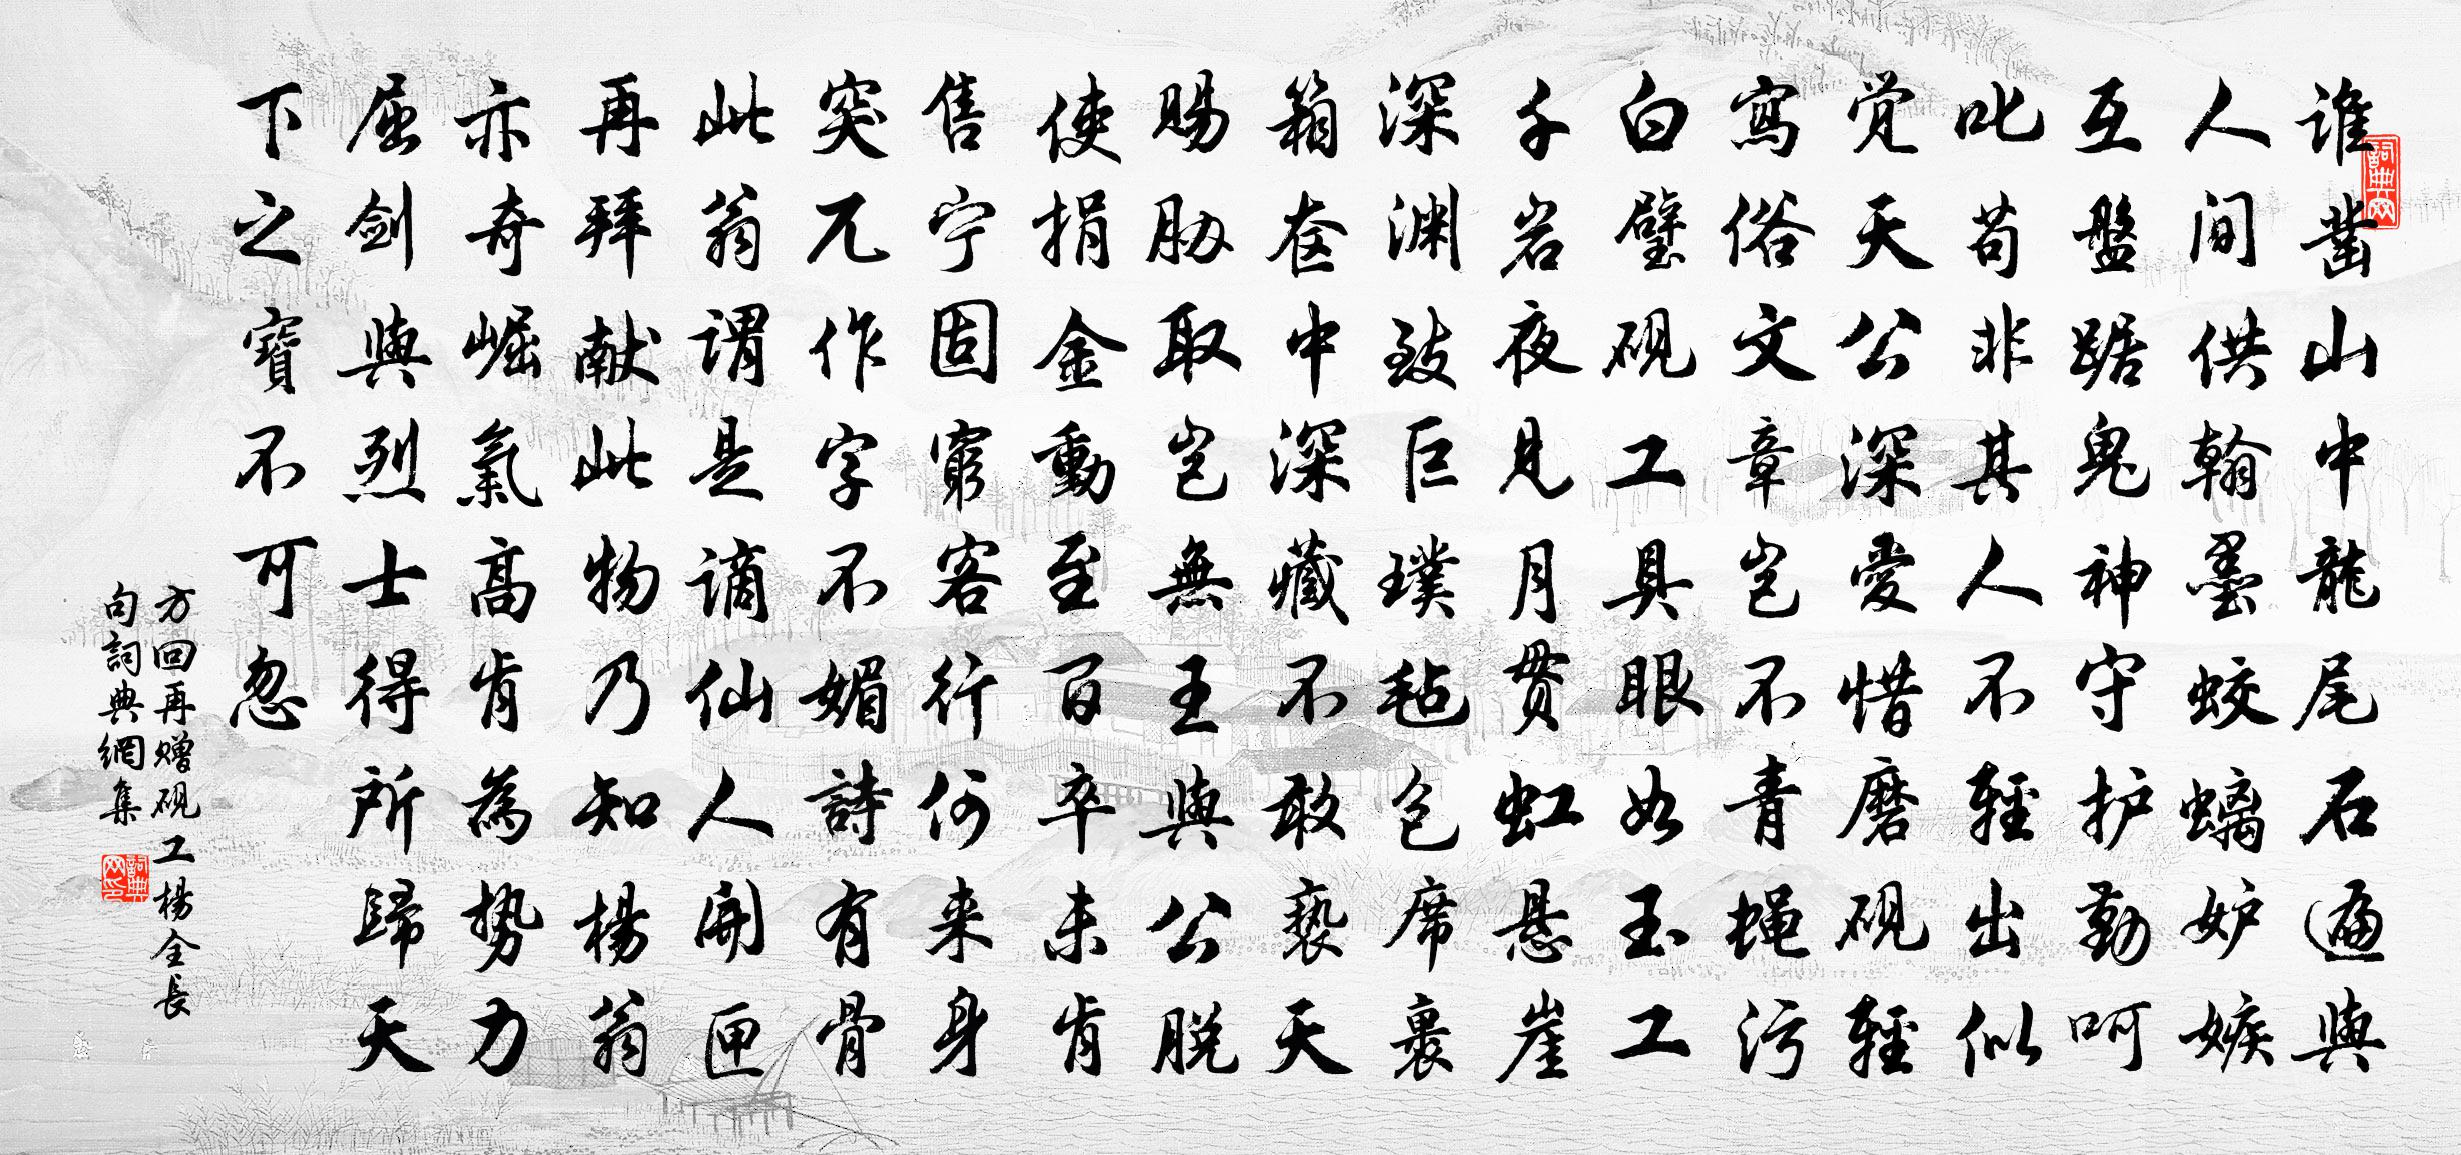 谁凿山中龍尾石遍與
人间供翰墨蛟螭妒嫉
互盤踞鬼神守护勤呵
叱苟非其人不輕出似
觉天公深愛惜磨砚輕
寫俗文章岂不青蝇污
白璧砚工具眼如玉工
千岩夜见月贯虹悬崖
深渊致巨璞毡包席裹
箱奁中深藏不敢亵天
賜胁取岂無王與公脱
使捐金動至百卒未肯
售宁固窮客行何来身
突兀作字不媚詩有骨
此翁谓是谪仙人開匣
再拜献此物乃知楊翁
亦奇崛氣高肯為势力
屈剑與烈士得所歸天
下之寶不可忽
方回再赠砚工楊全長
句詞典網集
詞典网
詞典网印